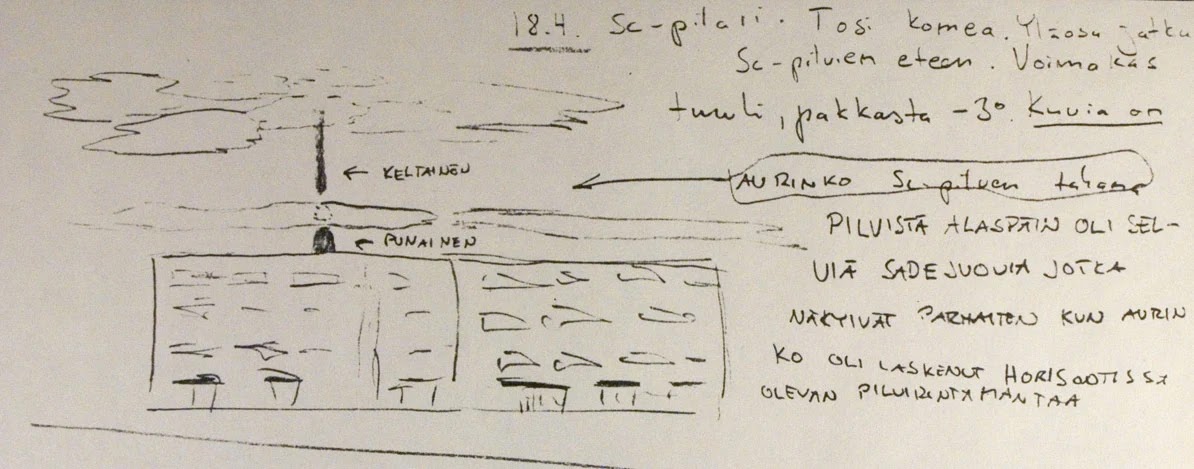 18.4. Sc-pilari. Tosi komea. Yläosa jatku
Sc-pilvien eteen. Voimakas
tuuli, pakkasta -3°. Kuvia on
KELTAINEN
AURINKO Sc-pilven takana
PUNAINEN
PILVISTÄ ALASPÄIN OLI SEL-
VIÄ SADEJUOVIA JOTKA
NÄKYIVÄT PARHAITEN KUN AURIN
KO OLI LASKENUT HORISOOTISSA
OLEVAN PILVIRINTAMAN TAA